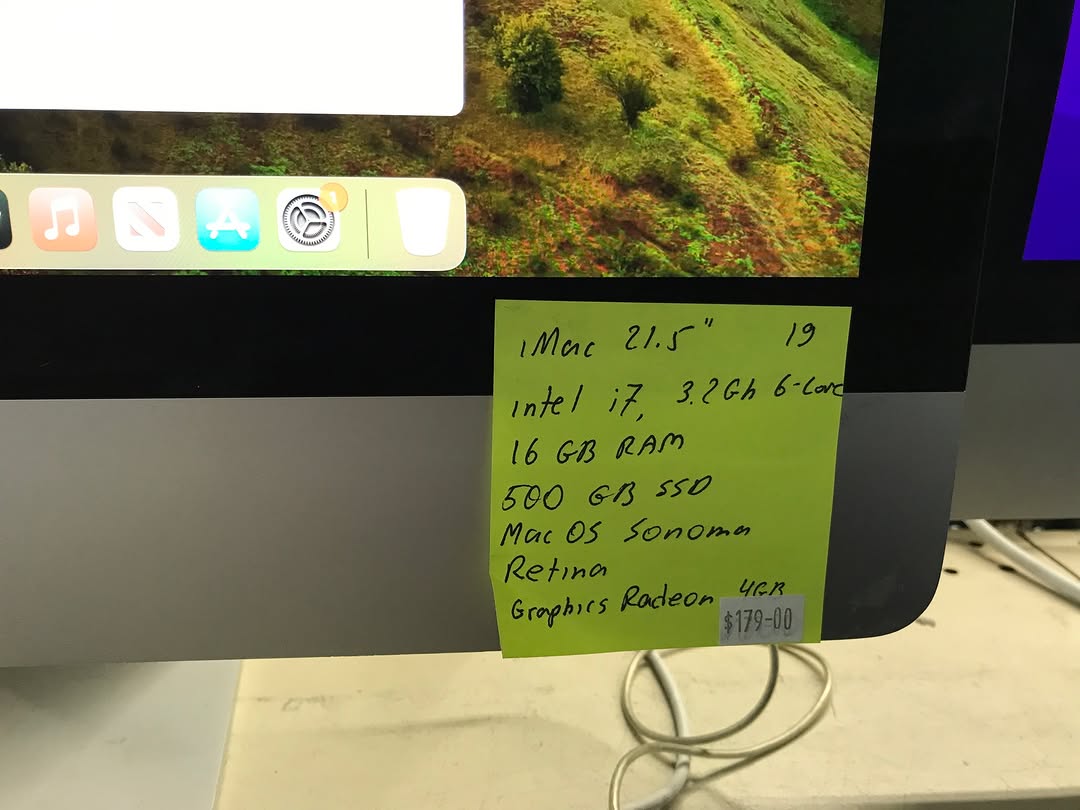 iMac 21.5" 19
intel i7, 3.2Gh 6-Core
16 GB RAM
500 GB SSD
Mac OS Sonoma
Retina
Graphics Radeon 4GB
$179-00
1